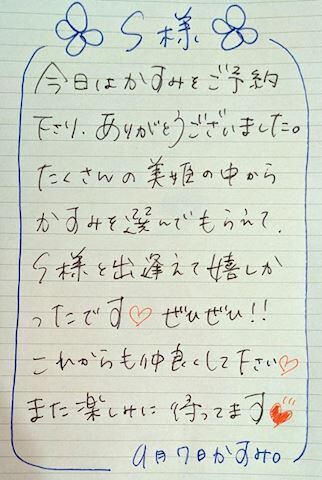 S様
今日はかすみをご予約
下さり、ありがとうございました。
たくさんの美姫の中から
かすみを選んでもらえて、
S様と出逢えて嬉しか
ったです♡ ぜひぜひ!!
これからも仲良くして下さい♡
また楽しみに待ってます♥
9月7日かすみ。